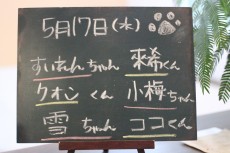 5月17日(水)
すいれんちゃん 來希くん
クオンくん 小梅ちゃん
雪ちゃん ココくん